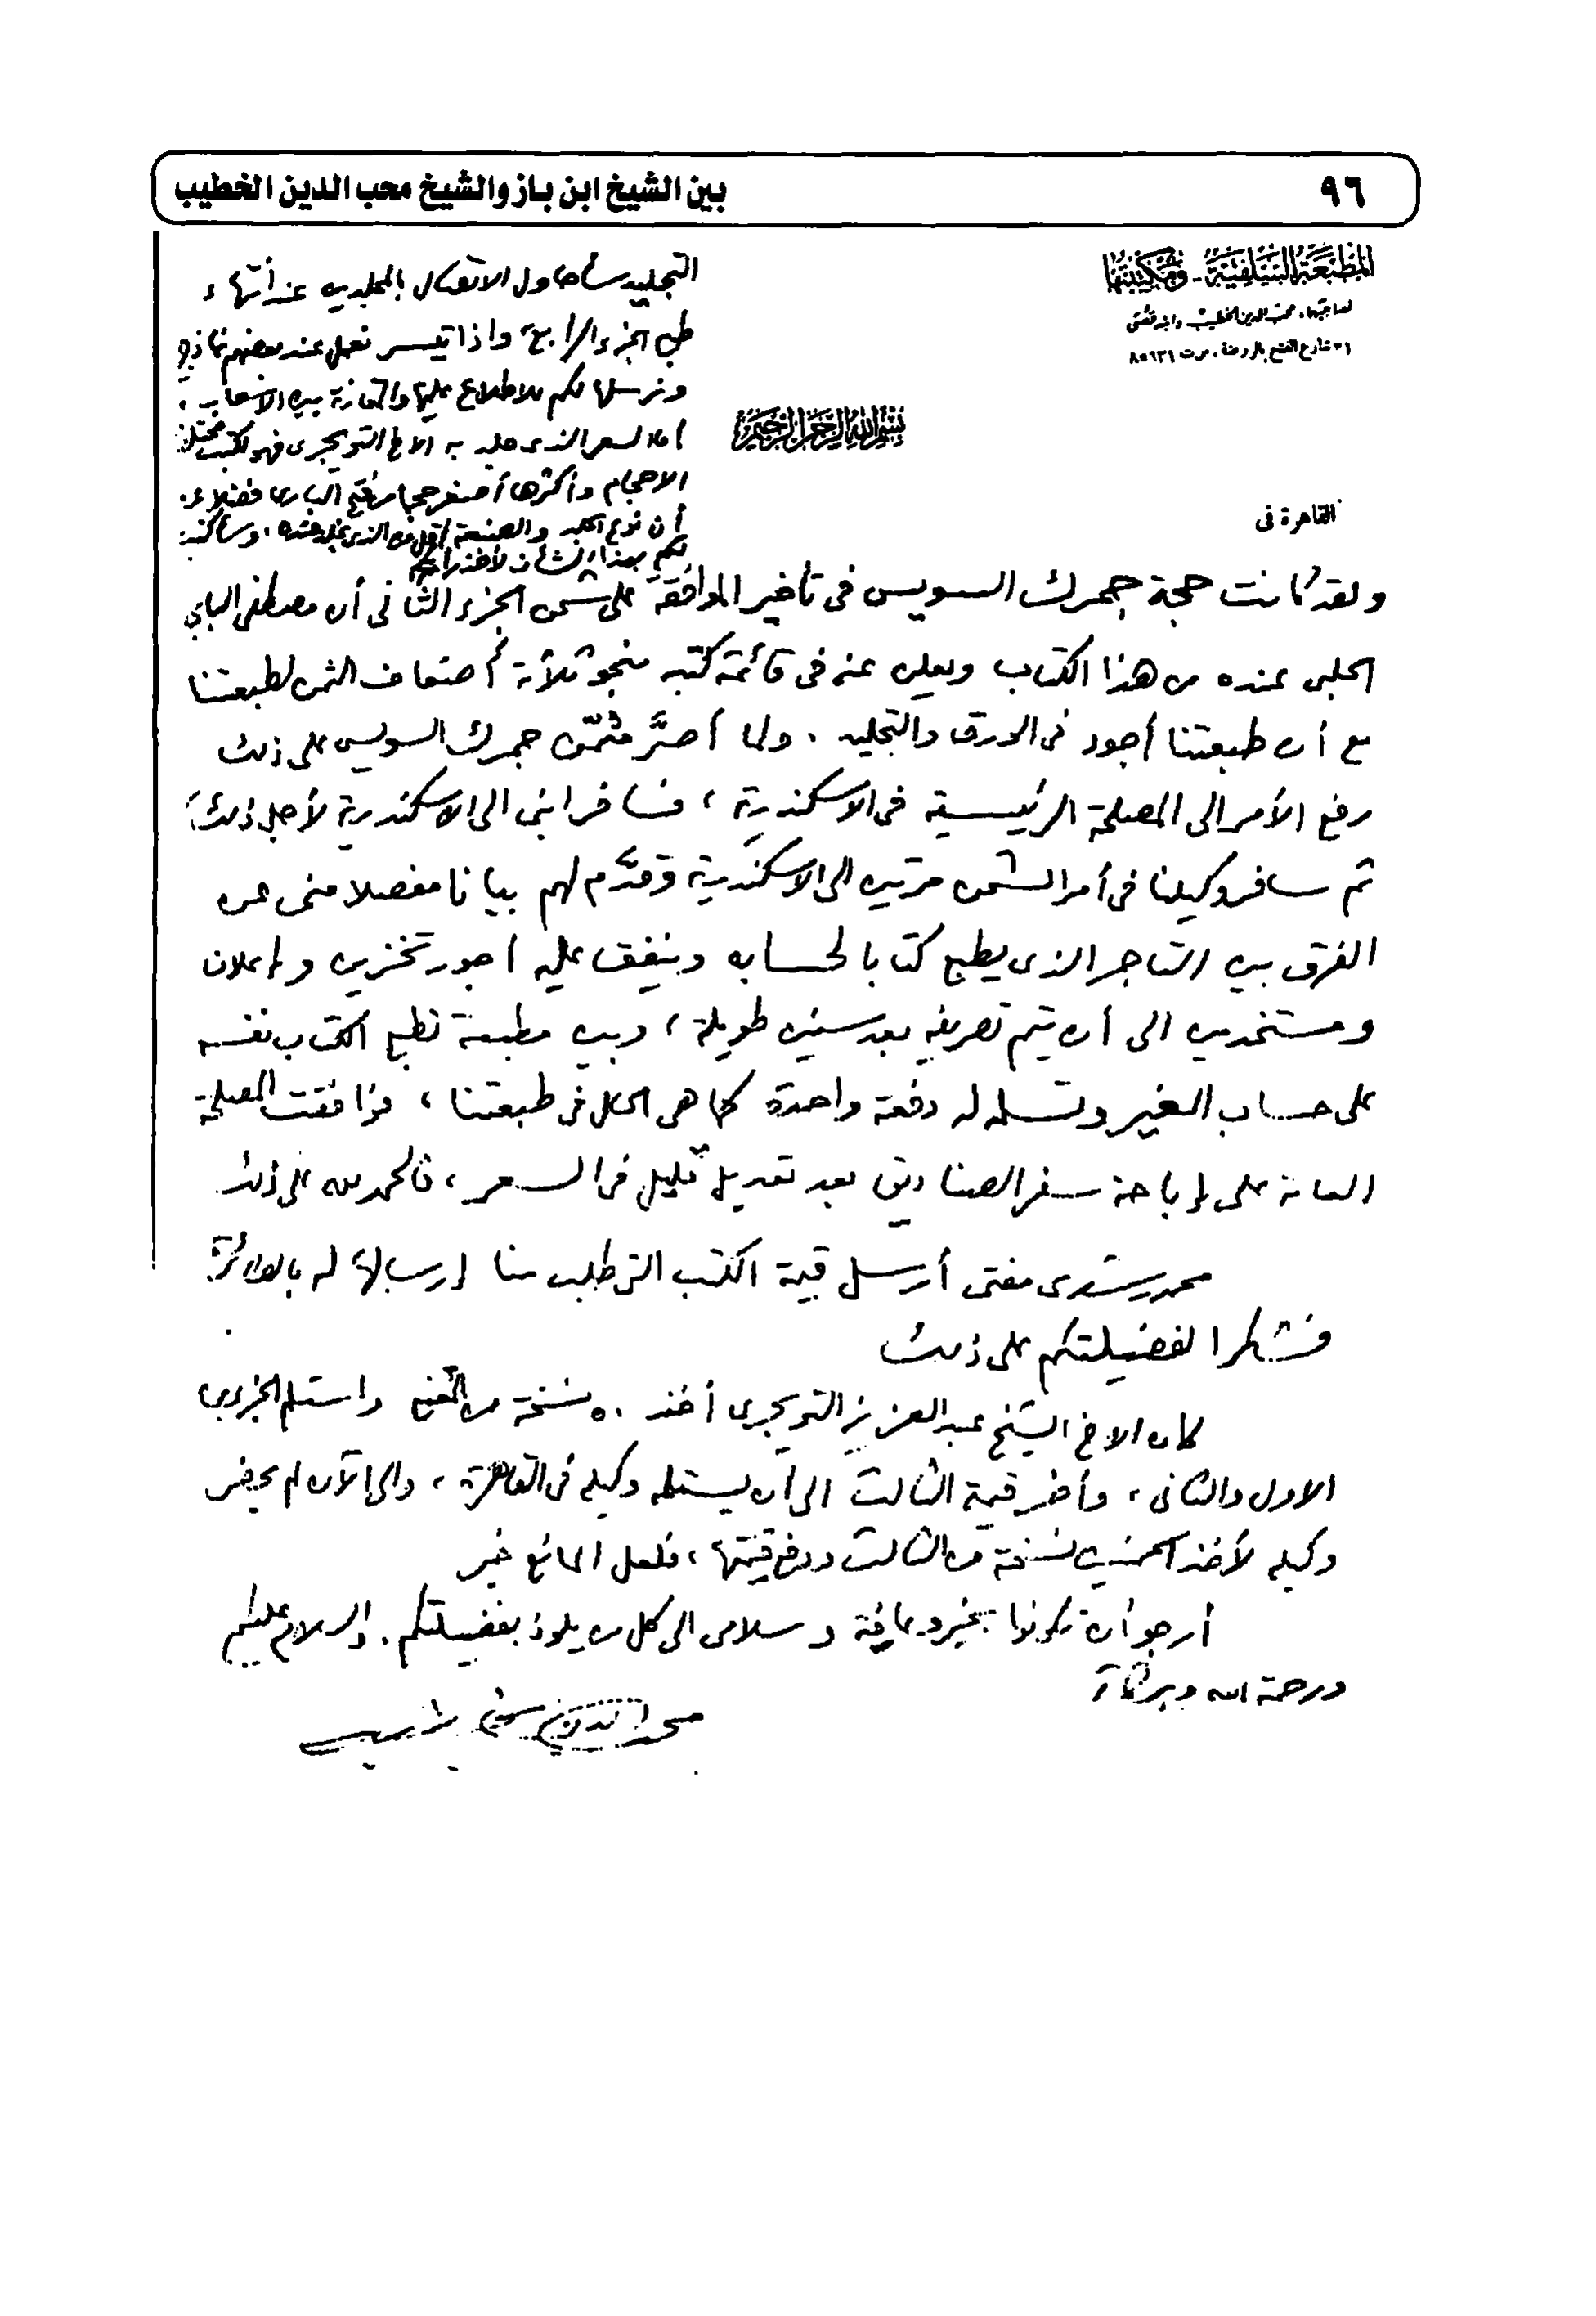 ٩٦
بين الشيخ ابن باز والشيخ محب الدين الخطيب
المطبعة السلفية - ومكتبتها
لصاحبها: محب الدين الخطيب وابنه قصي
٢١ شارع الفتح بالروضة. ت ٨٥٦٢١
بسم الله الرحمن الرحيم
القاهرة في
التجليد سأحاول الاتصال بالمجلدين عند انتهاء
طبع الجزء الرابع، واذا تيسر نعمل عند بعضهم نماذج
ونرسلها لكم للاطلاع عليها والمقارنة بين الأسعار،
أما السعر الذي جلد به الاخ التويجري فهو لكتب مختلفة
الاحجام وأكثرها أصغر حجما من فتح الباري فضلا عن
أن نوع الجلد والصنعة أقل من الذي عنده، وسأكتب
لكم بهذا الشأن لأخذ رأيكم
ولقد كانت حجة جمرك السويس في تأخير الموافقة على شحن الجزء الثاني أن مصطفى البابي
الحلبي عنده من هذا الكتاب ويعلن عنه في قائمة كتبه بنحو ثلاثة أضعاف الثمن لطبعتنا
مع أن طبعتنا أجود في الورق والتجليد. ولما أصرَّ مثمّن جمرك السويس على ذلك
رفع الأمر الى المصلحة الرئيسية في الاسكندرية، فسافر ابني الى الاسكندرية لأجل ذلك،
ثم سافر وكيلنا في أمر الشحن مرتين الى الاسكندرية وقدَّم لهم بيانا مفصلا مني عن
الفرق بين التاجر الذي يطبع كتابا لحسابه وينفق عليه أجور تخزين وإعلان
ومستخدمين الى أن يتم تصريفه بعد سنين طويلة، وبين مطبعة تطبع الكتاب نفسه
على حساب الغير وتسلمه له دفعة واحدة كما هي الحال في طبعتنا، فوافقت المصلحة
العامة على إباحة سفر الصناديق بعد تعديل قليل في السعر، فالحمد لله على ذلك
محمد رشدي مفتي أرسل قيمة الكتب التي طلب منا إرسالها له بالطائرة
فشكرا لفضيلتكم على ذلك
كان الاخ الشيخ عبد العزيز التويجري أخذ ٥٠ نسخة من الفتح واستلم الجزءين
الاول والثاني، وأخر قيمة الثالث الى أن يستلمه وكيله في القاهرة، والى الآن لم يحضر
وكيله لأخذ الخمسين نسخة من الثالث ودفع قيمتها، فلعل المانع خير
أرجو أن تكونوا بخير وعافية وسلامي الى كل من يلوذ بفضيلتكم. والسلام عليكم
ورحمة الله وبركاته
محب الدين الخطيب